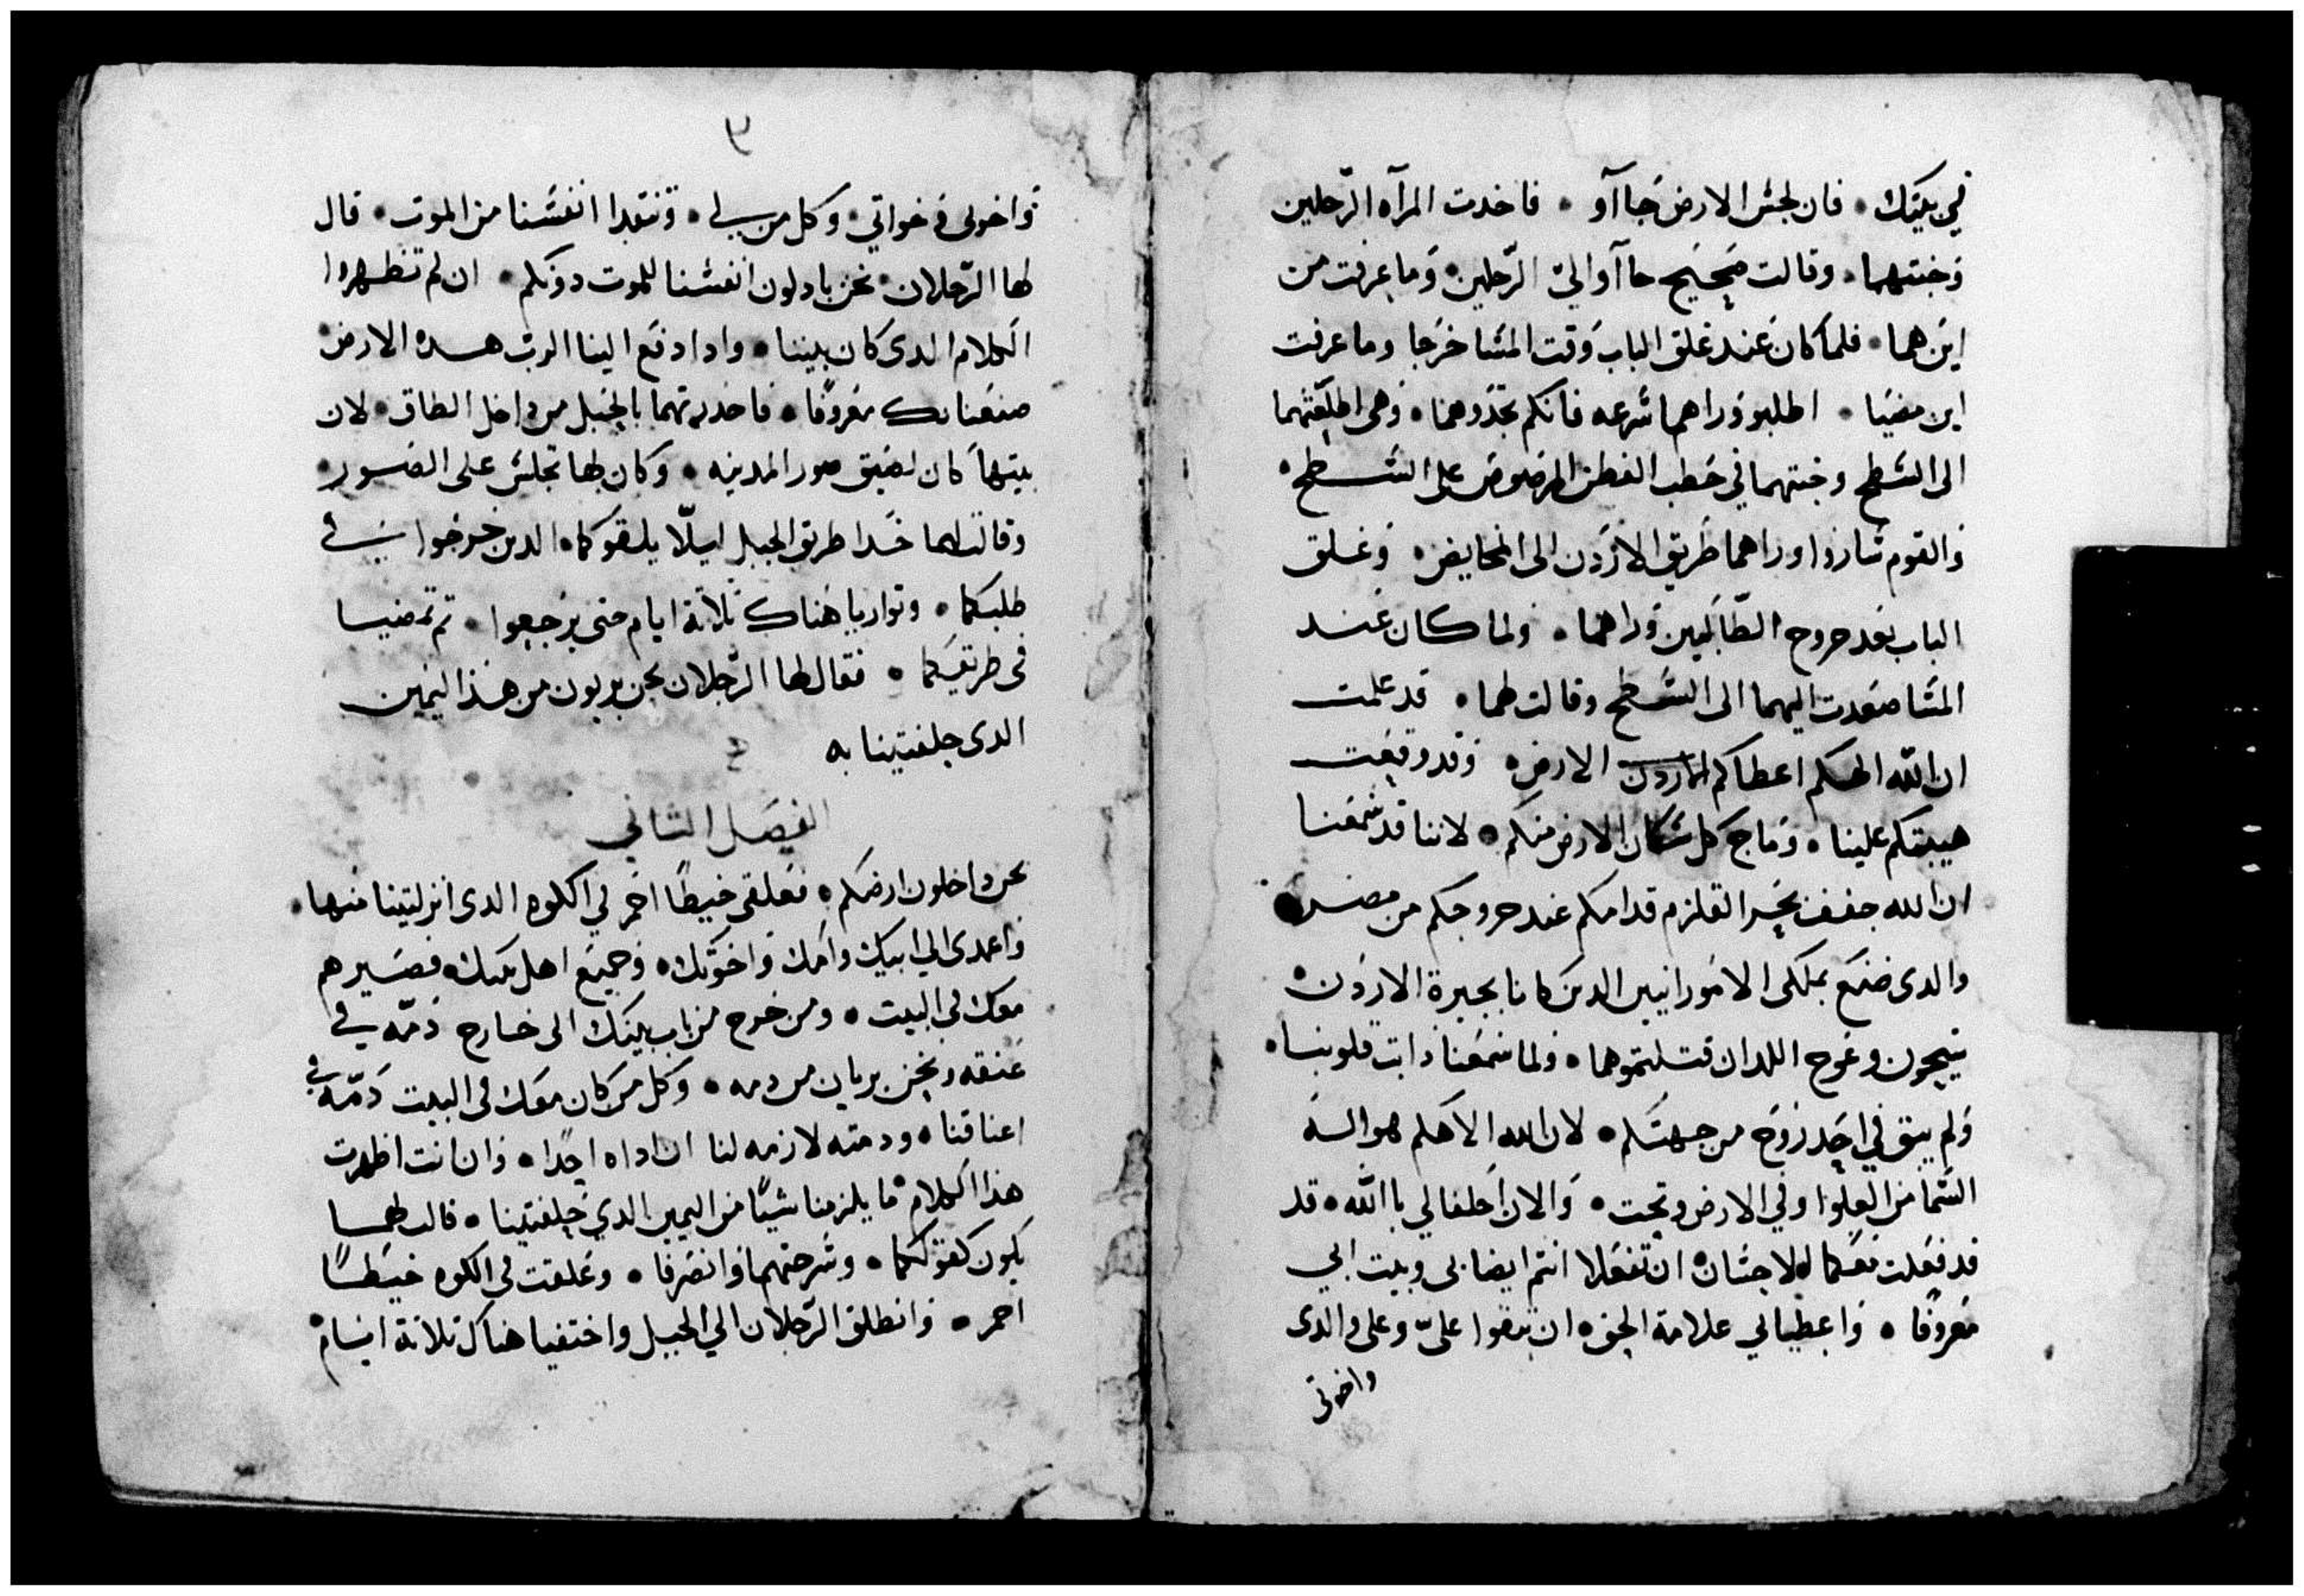 في بيتك • فان لجس الارض جا آو • فاخدت المرآه الرّجلين
وخبتهما • وقالت صحيح جا آو اليّ الرّجلين • وما عرفت من
اين هما • فلما كان عند غلق الباب وقت المسَا خرجا وما عرفت
اين مضيا • اطلبو وراهما سرعه فانكم تجدوهما • وهي اطلعتهما
الى السطح وخبتهما في حطب القطن المرصوص على السطح •
والقوم ساروا وراهما طريق الاردن الى المخايض • وغلق
الباب بعد خروج الطّالبين وراهما • ولما كان عند
المسَا صعدت اليهما الى السطح وقالت لهما • قد علمت
ان اللّه الهكم اعطاكم الارض • وقد وقعت
هيبتكم علينا • وماج كل سكان الارض منكم • لاننا قد سمعنا
ان الله جفف بحر القلزم قدامكم عند خروجكم من مصر •
والدى صنع بملكى الامورانيين الدين كانا بجيرة الاردن •
سيحون وعوج اللدان قتلتموهما • ولما سمعنا دابت قلوبنا •
ولم يبق في احد روح من جهتكم • لان الله الاهكم هو اله
السّما من العلوا وفي الارض وتحت • والان احلفا لي باللّه • قد
قد فعلت معكما الاحسان • ان تفعلا انتم ايضا بى وبيت ابي
معروفا • واعطياني علامة الحق • ان تبقوا عليّ وعلى والدى
واخوتى
٩
واخوتى وخواتي • وكل من لي • وتنقدا انفسنا من الموت • قال
لها الرّجلان • نحن بادلون انفسنا للموت دونكم • ان لم تظهروا
الكلام الدى كان بيننا • وادا دفع الينا الرب هده الارض
صنعنا بك معروفًا • فاحدرتهما بالحبل من داخل الطاق • لان
بيتها كان لصيق صور المدينه • وكان لها تجلس على الصور •
وقالت لهما خدا طريق الجبل ليلّا يلقوكما • الدين خرجوا في
طلبكما • وتواريا هناك ثلاثة ايام حتى يرجعوا • تم تمضيا
فى طريقكما • فقال لها الرّجلان نحن بريون من هذا اليمين
الدى حلفتينا به
الفصل الثاني
نحن داخلون ارضكم • فعلقى خيطًا احمر في الكوه الدى انزلتينا منها •
واعمدى الي ابيك وامك واخوتك • وجميع اهل بيتك • فصيرهم
معك في البيت • ومن خرج من باب بيتك الى خارج دمّه في
عنقه ونحن بريان من دمه • وكل من كان معك فى البيت دمّه في
اعناقنا • ودمته لازمه لنا ان اداه احدا • وان انت اظهرت
هذا الكلام ما يلزمنا شيًا من اليمين الدي حلفتينا • قالت لهما
يكون كقولكما • وسرحتهما وانصرفا • وعلقت في الكوه خيطًا
احمر • وانطلق الرّجلان الي الجبل واختفيا هناك ثلاثة ايام •